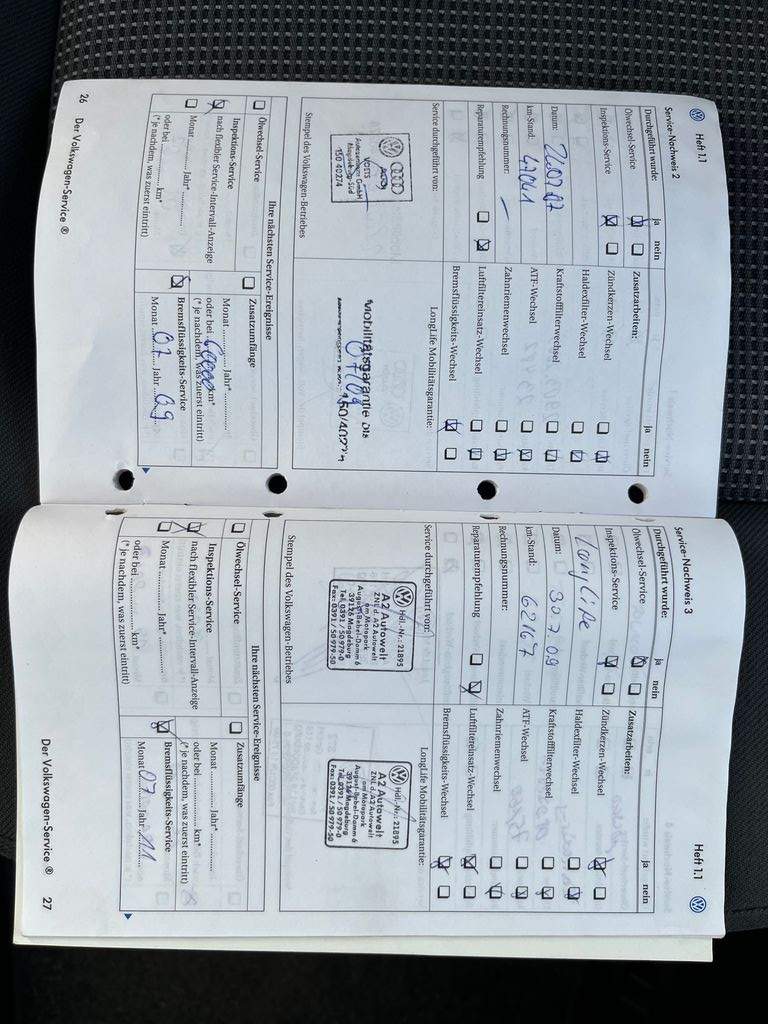 Heft 1.1
Service-Nachweis 2
Durchgeführt wurde: ja nein
Ölwechsel-Service
Inspektions-Service
Datum: 20.07.07
km-Stand: 47041
Rechnungsnummer: /
Reparaturempfehlung
Service durchgeführt von:
VOETS
Autozentrum GmbH
Magdeburg-Süd
150 40274
Stempel des Volkswagen-Betriebes
Zusatzarbeiten: ja nein
Zündkerzen-Wechsel
Haldexfilter-Wechsel
Kraftstofffilterwechsel
ATF-Wechsel
Zahnriemenwechsel
Luftfiltereinsatz-Wechsel
Bremsflüssigkeits-Wechsel
LongLife Mobilitätsgarantie:
Mobilitätsgarantie bis
07/09
Ihre nächsten Service-Ereignisse
Ölwechsel-Service
Inspektions-Service
nach flexibler Service-Intervall-Anzeige
Monat ............ Jahr* ............
oder bei ............ km*
(* je nachdem, was zuerst eintritt)
Zusatzumfänge
Monat ............ Jahr* ............
oder bei 60000 km*
(* je nachdem, was zuerst eintritt)
Bremsflüssigkeits-Service
Monat 07 Jahr 09
26 Der Volkswagen-Service ®
Heft 1.1
Service-Nachweis 3
Durchgeführt wurde: ja nein
Ölwechsel-Service
Inspektions-Service
LongLife
Datum: 30.7.09
km-Stand: 62167
Rechnungsnummer:
Reparaturempfehlung
Service durchgeführt von:
Hdl.-Nr.: 21895
A2 Autowelt
ZNL d. A2 Autowelt
am Motopark
August-Bebel-Damm 6
39126 Magdeburg
Tel. 0391 / 50 979-0
Fax: 0391 / 50 979-50
Stempel des Volkswagen-Betriebes
Zusatzarbeiten: ja nein
Zündkerzen-Wechsel
Haldexfilter-Wechsel
Kraftstofffilterwechsel
ATF-Wechsel
Zahnriemenwechsel
Luftfiltereinsatz-Wechsel
Bremsflüssigkeits-Wechsel
LongLife Mobilitätsgarantie:
Hdl.-Nr.: 21895
A2 Autowelt
ZNL d. A2 Autowelt
am Motopark
August-Bebel-Damm 6
39126 Magdeburg
Tel. 0391 / 50 979-0
Fax: 0391 / 50 979-50
Ihre nächsten Service-Ereignisse
Ölwechsel-Service
Inspektions-Service
nach flexibler Service-Intervall-Anzeige
Monat ............ Jahr* ............
oder bei ............ km*
(* je nachdem, was zuerst eintritt)
Zusatzumfänge
Monat ............ Jahr* ............
oder bei ............ km*
(* je nachdem, was zuerst eintritt)
Bremsflüssigkeits-Service
Monat 07 Jahr 11
Der Volkswagen-Service ® 27